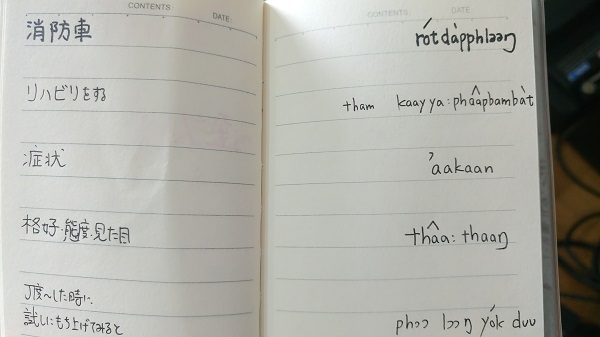 CONTENTS: DATE:
消防車
リハビリをする
症状
格好・態度・見た目
丁度〜した時に、
試しにもち上げてみると
CONTENTS DATE
rótdàpphləəŋ
tham kaayya:phâapbambàt
ʼaakaan
thâa: thaaŋ
phɔɔ lɔɔŋ yók duu